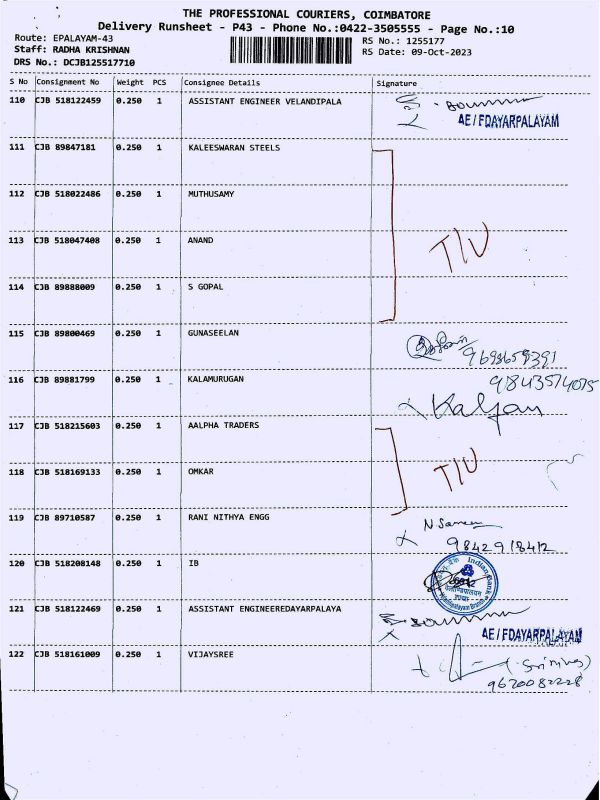 THE PROFESSIONAL COURIERS, COIMBATORE
Delivery Runsheet - P43 - Phone No.:0422-3505555 - Page No.:10
Route: EPALAYAM-43
RS No.: 1255177
Staff: RADHA KRISHNAN
RS Date: 09-Oct-2023
DRS No.: DCJB125517710
S No Consignment No Weight PCS Consignee Details Signature
110 CJB 518122459 0.250 1 ASSISTANT ENGINEER VELANDIPALA
AE/FDAYARPALAYAM
111 CJB 89847181 0.250 1 KALEESWARAN STEELS
112 CJB 518022486 0.250 1 MUTHUSAMY
113 CJB 518047408 0.250 1 ANAND T/U
114 CJB 89888009 0.250 1 S GOPAL
115 CJB 89800469 0.250 1 GUNASEELAN
9698659391
116 CJB 89881799 0.250 1 KALAMURUGAN
9843574075
Kalyan
117 CJB 518215603 0.250 1 AALPHA TRADERS
118 CJB 518169133 0.250 1 OMKAR T/U
119 CJB 89710587 0.250 1 RANI NITHYA ENGG
9842918412
120 CJB 518208148 0.250 1 IB
Indian Bank
121 CJB 518122469 0.250 1 ASSISTANT ENGINEEREDAYARPALAYA
AE/FDAYARPALAYAM
122 CJB 518161009 0.250 1 VIJAYSREE
9620082228